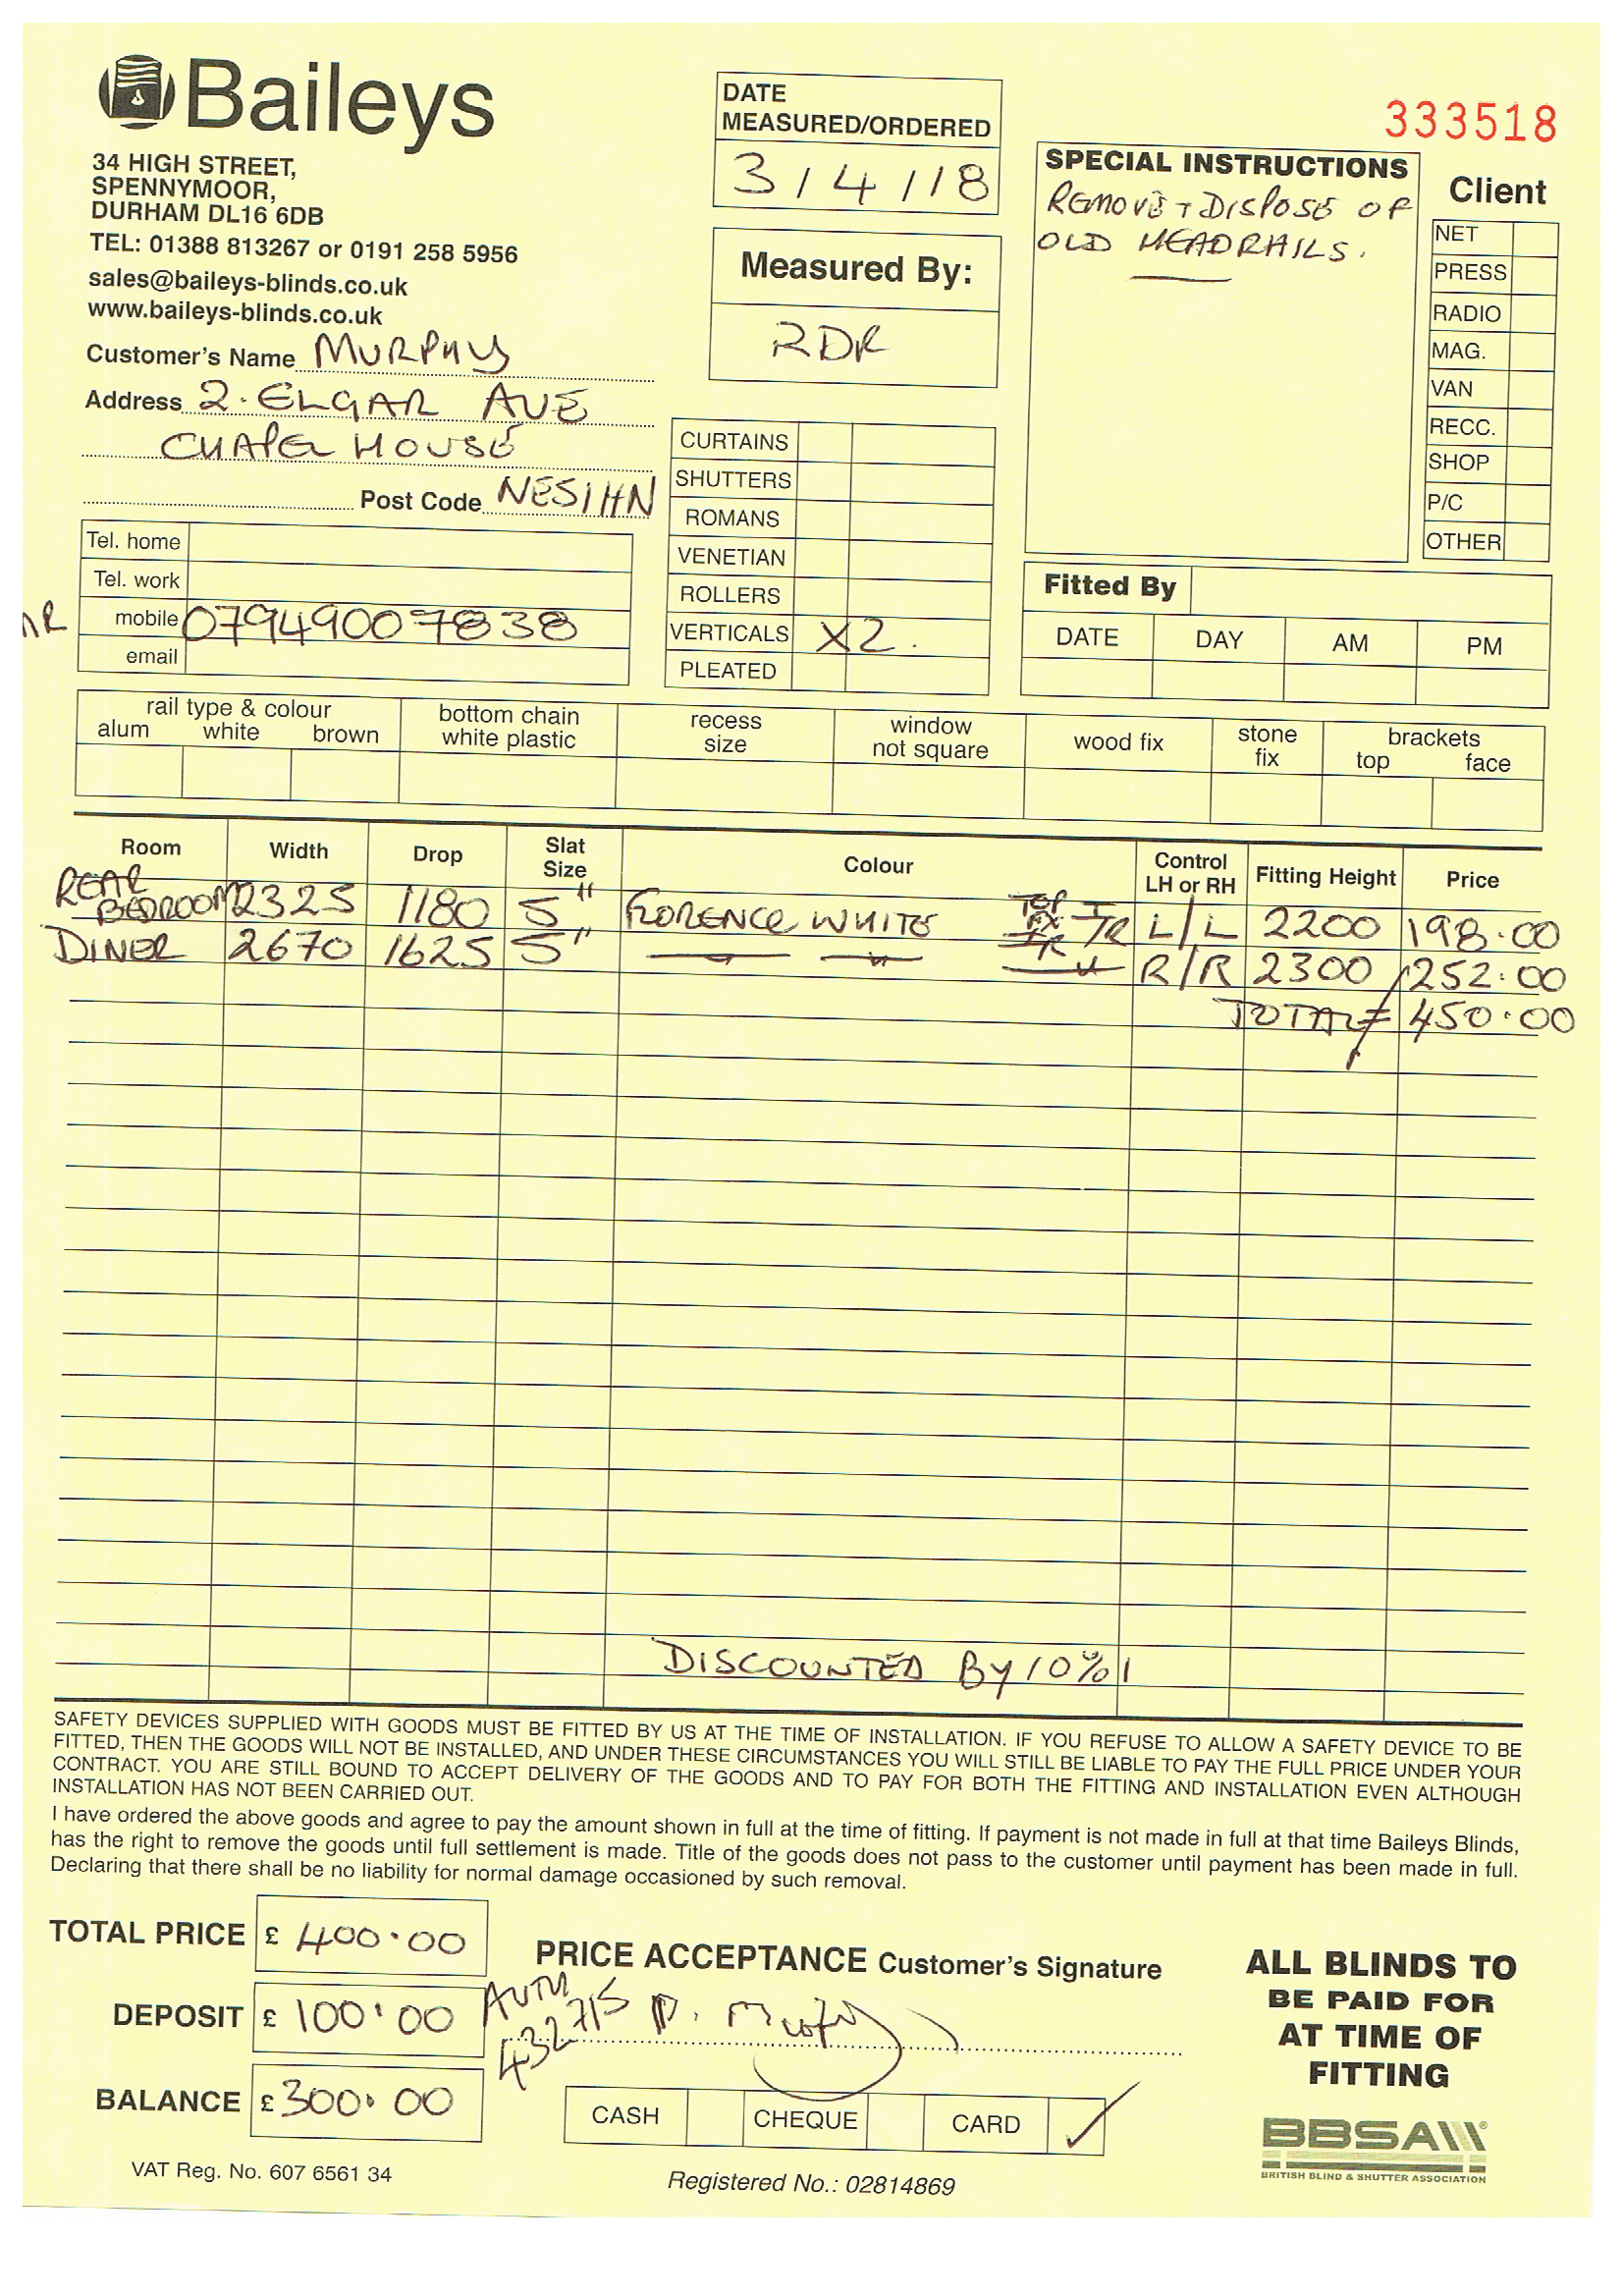 Baileys
34 HIGH STREET,
SPENNYMOOR,
DURHAM DL16 6DB
TEL: 01388 813267 or 0191 258 5956
sales@baileys-blinds.co.uk
www.baileys-blinds.co.uk
Customer's Name MURPHY
Address 2. ELGAR AVE
CHAPEL HOUSE
Post Code NE51HN
Tel. home
Tel. work
mobile 07949007838
email
DATE
MEASURED/ORDERED
3/4/18
Measured By:
RDR
CURTAINS
SHUTTERS
ROMANS
VENETIAN
ROLLERS
VERTICALS X2.
PLEATED
333518
SPECIAL INSTRUCTIONS
REMOVE + DISPOSE OF
OLD HEADRAILS.
Client
NET
PRESS
RADIO
MAG.
VAN
RECC.
SHOP
P/C
OTHER
Fitted By
DATE DAY AM PM
rail type & colour bottom chain recess window wood fix stone brackets
alum white brown white plastic size not square fix top face
Room Width Drop Slat Size Colour Control LH or RH Fitting Height Price
REAR BEDROOM 2325 1180 5" FLORENCE WHITE TOP FIX I/R L/L 2200 198.00
DINER 2670 1625 5" " " " R/R 2300 252.00
TOTAL = 450.00
DISCOUNTED BY 10% !
SAFETY DEVICES SUPPLIED WITH GOODS MUST BE FITTED BY US AT THE TIME OF INSTALLATION. IF YOU REFUSE TO ALLOW A SAFETY DEVICE TO BE
FITTED, THEN THE GOODS WILL NOT BE INSTALLED, AND UNDER THESE CIRCUMSTANCES YOU WILL STILL BE LIABLE TO PAY THE FULL PRICE UNDER YOUR
CONTRACT. YOU ARE STILL BOUND TO ACCEPT DELIVERY OF THE GOODS AND TO PAY FOR BOTH THE FITTING AND INSTALLATION EVEN ALTHOUGH
INSTALLATION HAS NOT BEEN CARRIED OUT.
I have ordered the above goods and agree to pay the amount shown in full at the time of fitting. If payment is not made in full at that time Baileys Blinds,
has the right to remove the goods until full settlement is made. Title of the goods does not pass to the customer until payment has been made in full.
Declaring that there shall be no liability for normal damage occasioned by such removal.
TOTAL PRICE £ 400.00
DEPOSIT £ 100.00
BALANCE £ 300.00
VAT Reg. No. 607 6561 34
PRICE ACCEPTANCE Customer's Signature
AUTH
432715 P. Murphy
CASH CHEQUE CARD ✓
Registered No.: 02814869
ALL BLINDS TO
BE PAID FOR
AT TIME OF
FITTING
BBSA
BRITISH BLIND & SHUTTER ASSOCIATION